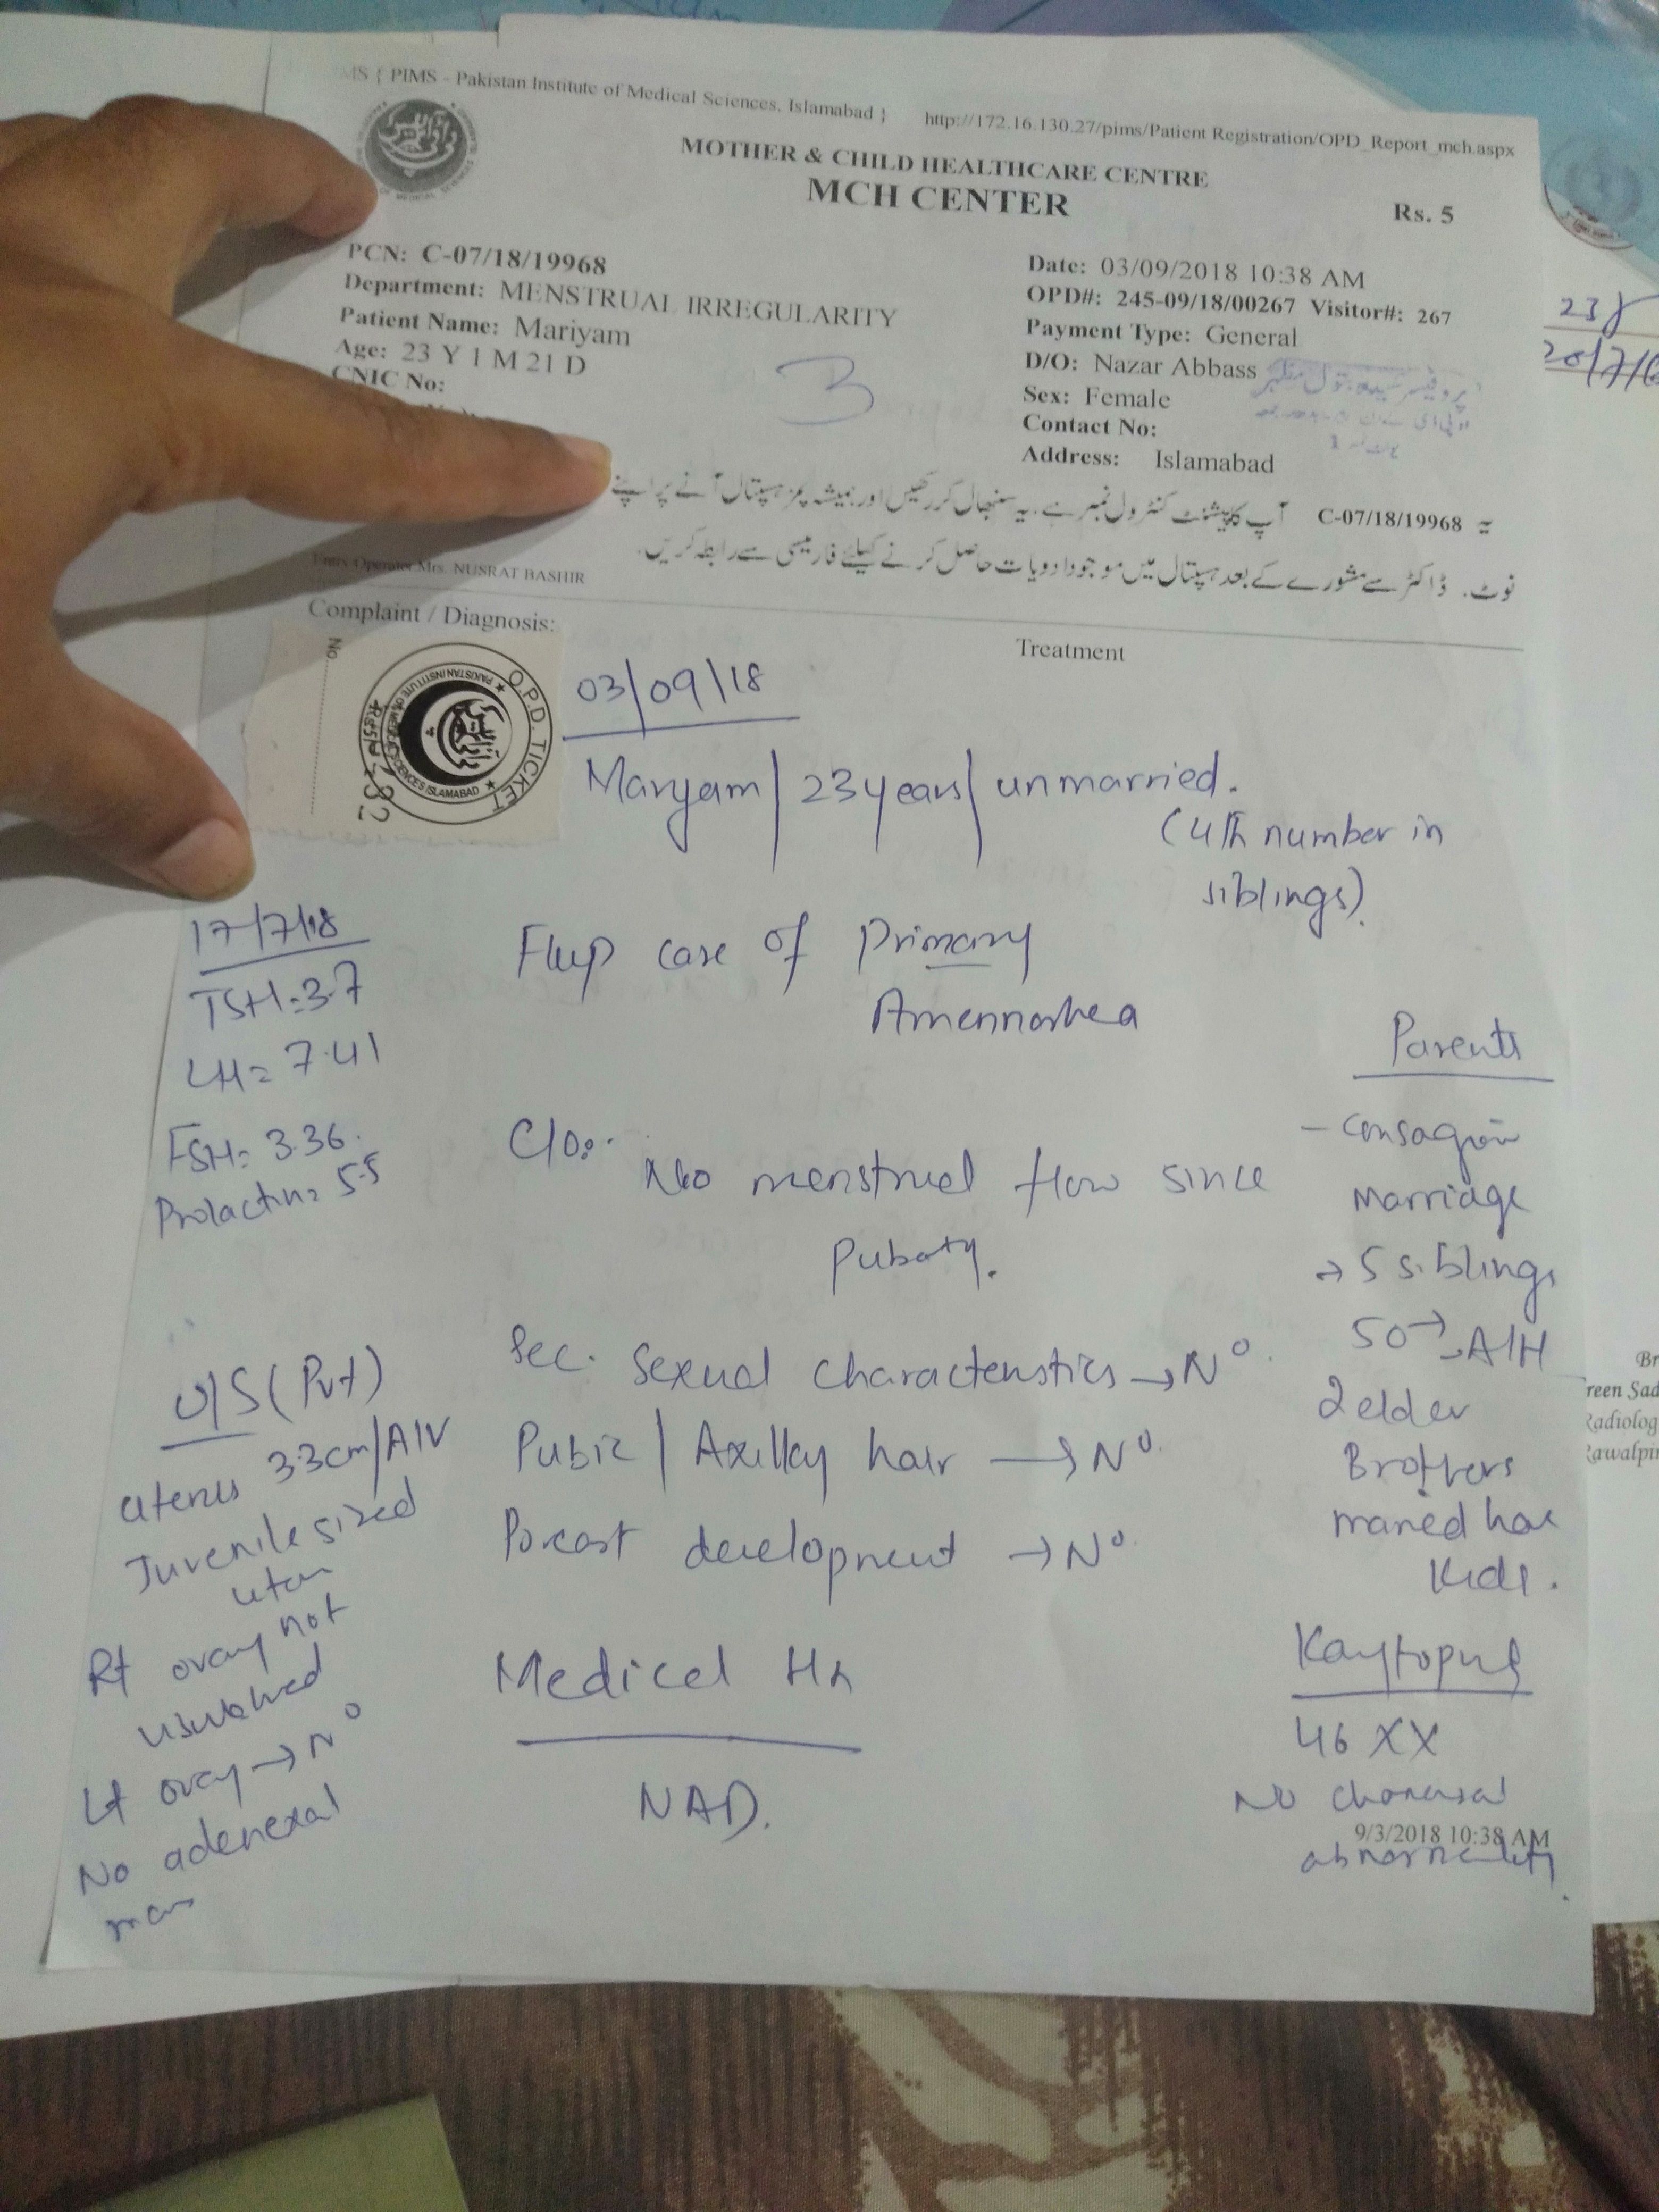 PIMS - Pakistan Institute of Medical Sciences, Islamabad }
http://172.16.130.27/pims/Patient Registration/OPD_Report_mch.aspx
MOTHER & CHILD HEALTHCARE CENTRE
MCH CENTER
Rs. 5
PCN: C-07/18/19968
Department: MENSTRUAL IRREGULARITY
Patient Name: Mariyam
Age: 23 Y 1 M 21 D
CNIC No:
3
Date: 03/09/2018 10:38 AM
OPD#: 245-09/18/00267 Visitor#: 267
Payment Type: General
D/O: Nazar Abbass
Sex: Female
Contact No:
Address: Islamabad
یہ C-07/18/19968 آپ کا پیشنٹ کنٹرول نمبر ہے۔ یہ سنبھال کر رکھیں اور ہمیشہ پمز ہسپتال آنے پر اپنے
نوٹ۔ ڈاکٹر سے مشورے کے بعد ہسپتال میں موجود ادویات حاصل کرنے کیلئے فارمیسی سے رابطہ کریں۔
Entry Operator Mrs. NUSRAT BASHIR
Complaint / Diagnosis:
Treatment
No
O.P.D. TICKET
03/09/18
Maryam / 23 years / unmarried.
(4th number in
siblings).
17/7/18
TSH = 3.7
LH = 7.41
FSH = 3.36
Prolactin = 5.5
Flup case of Primary
Amennorhea
C/O:
No menstrual flow since
Puberty.
Sec. Sexual characteristics → N°
Pubic / Axillay hair → N°
Breast development → N°
Medical Hx
NAD.
U/S (Pvt)
uterus 3.3cm / A/V
Juvenile sized
Rt ovary not
Lt ovary → N°
No adenexal
mass
Parents
Marriage
→ 5 siblings
A/H
2 elder
Brothers
married have
Kids.
46 XX
No
abnormality.
9/3/2018 10:38 AM